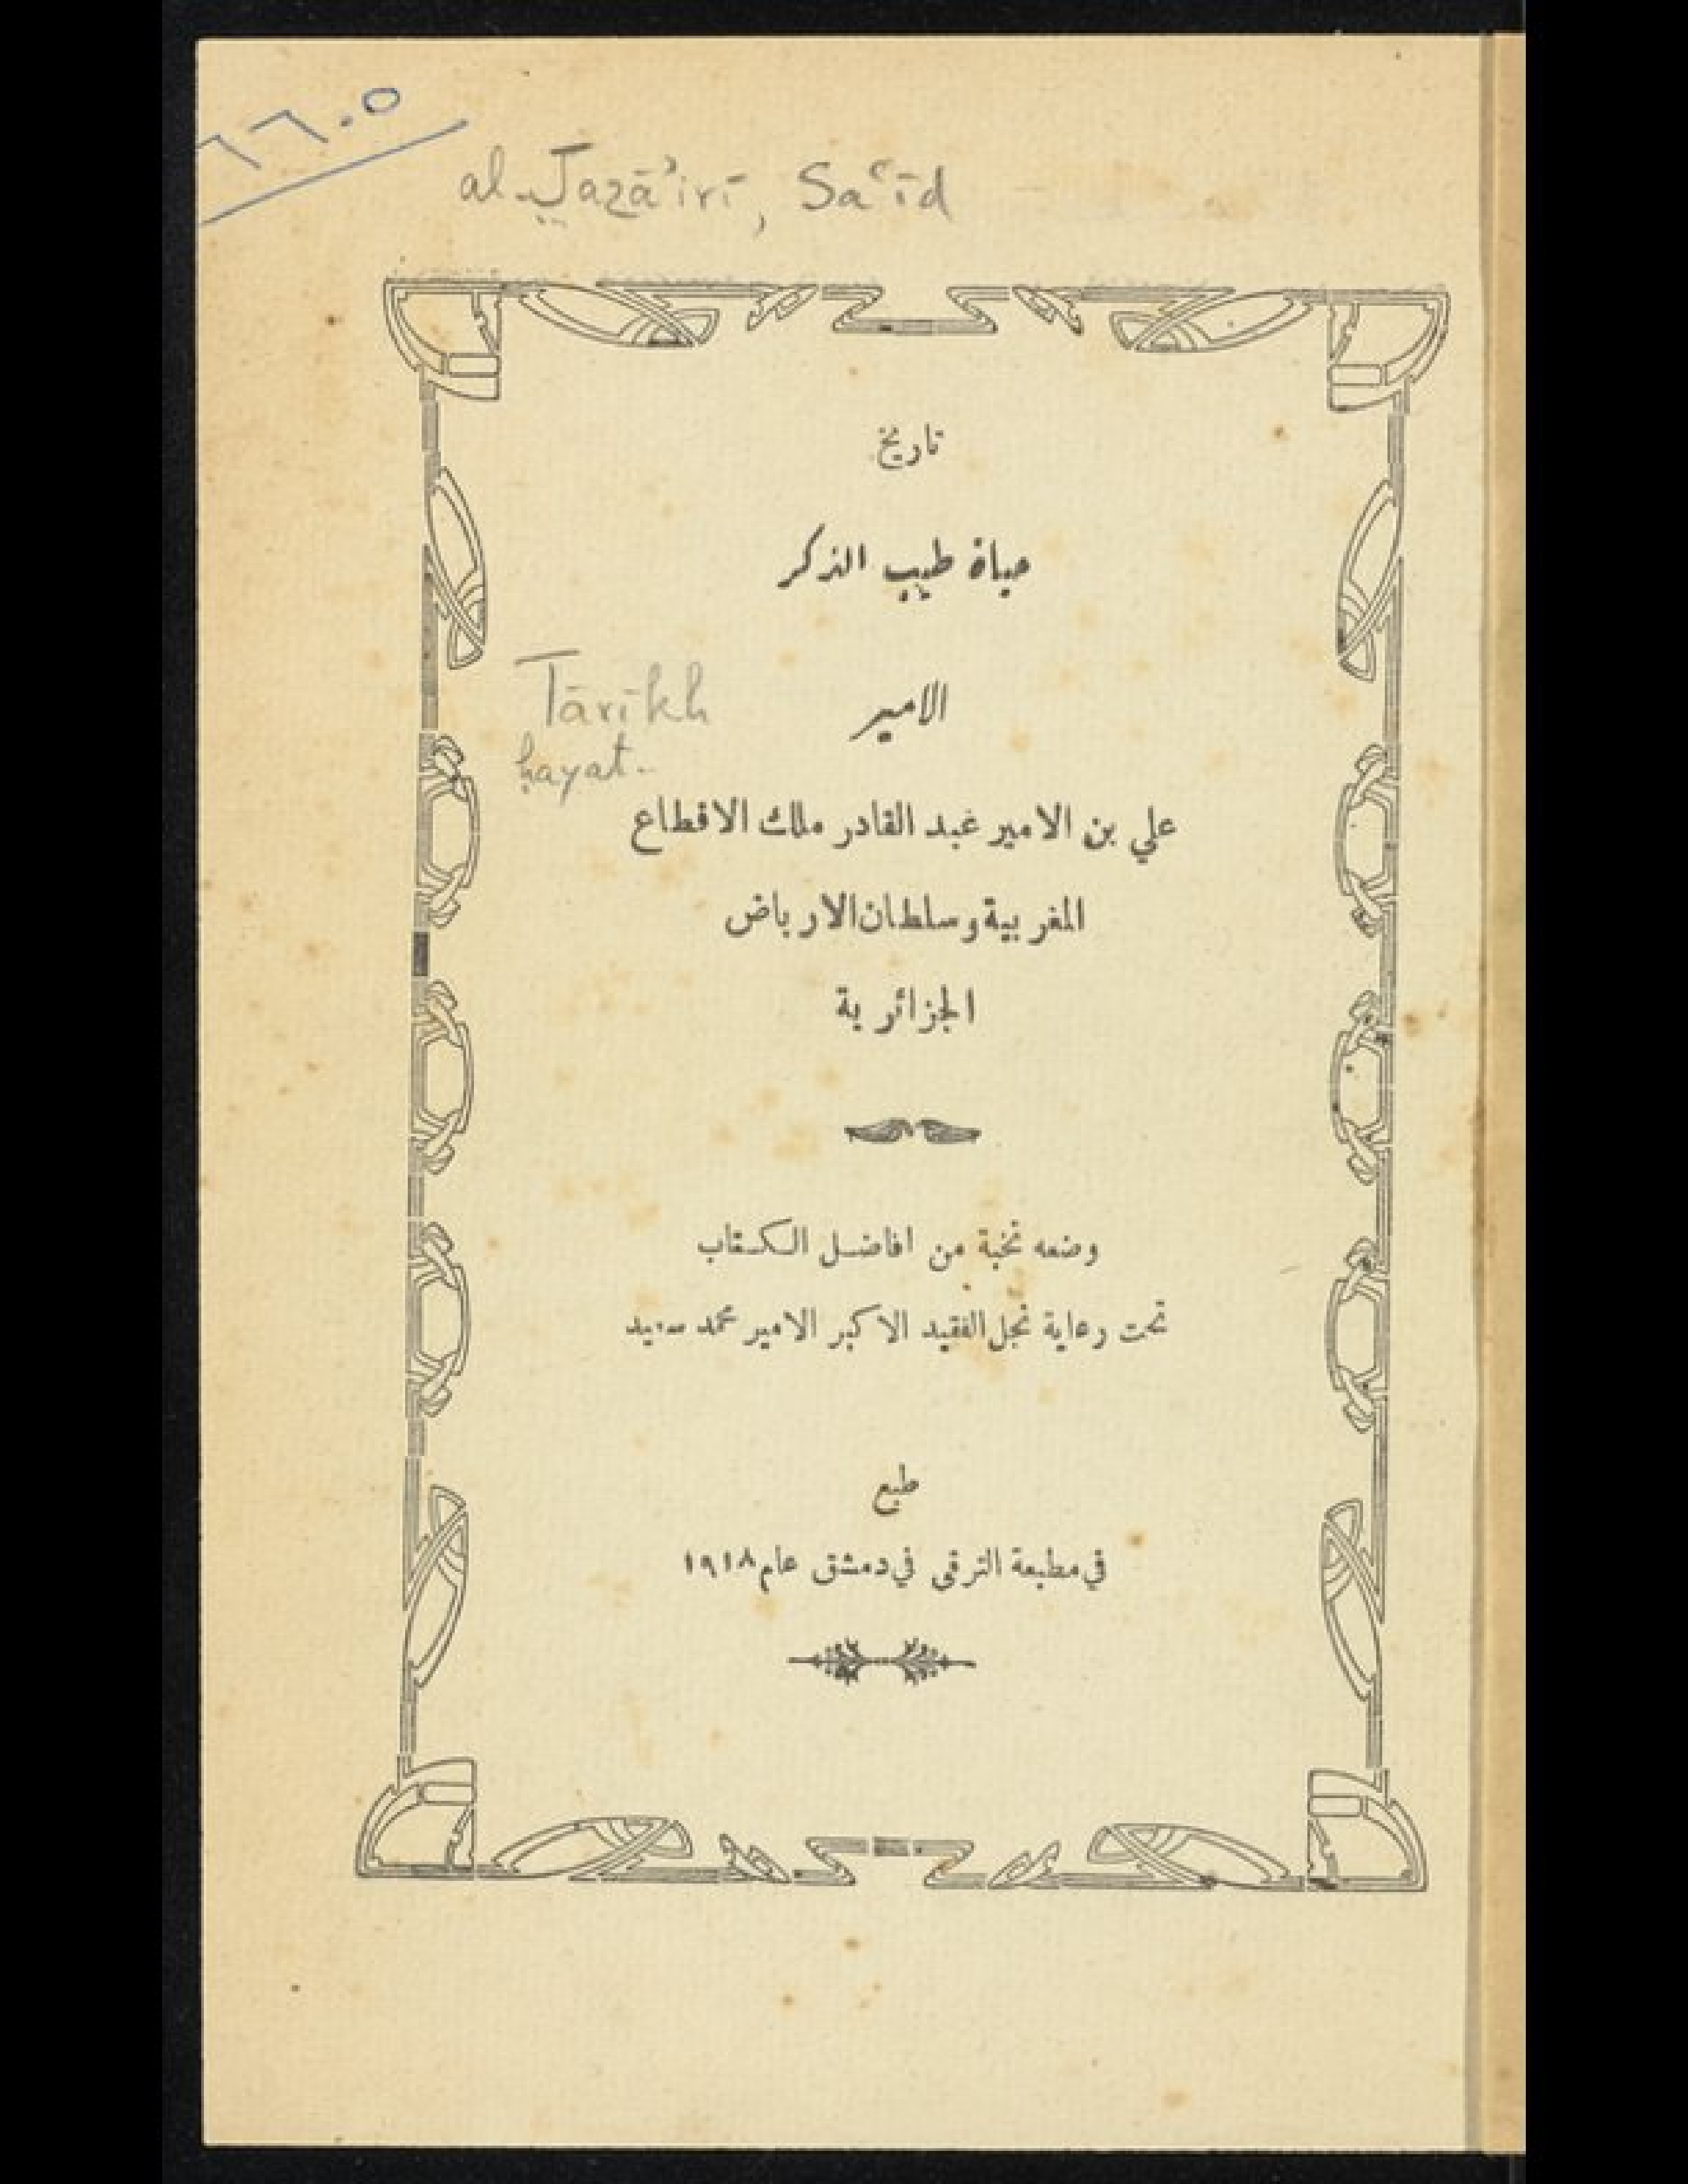 ٦٦٠٥
al-Jazā'irī, Sa‘īd
تاريخ
حياة طيب الذكر
الامير
Tārīkh
ḥayat-
علي بن الامير عبد القادر ملك الاقطاع
المغربية وسلطان الارباض
الجزائرية
وضعه نخبة من افاضل الكتاب
تحت رعاية نجل الفقيد الاكبر الامير محمد سعيد
طبع
في مطبعة الترقي في دمشق عام ١٩١٨